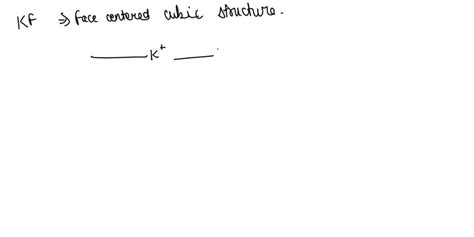 KF ⇒ face centered cubic structure.
——— K⁺ ———